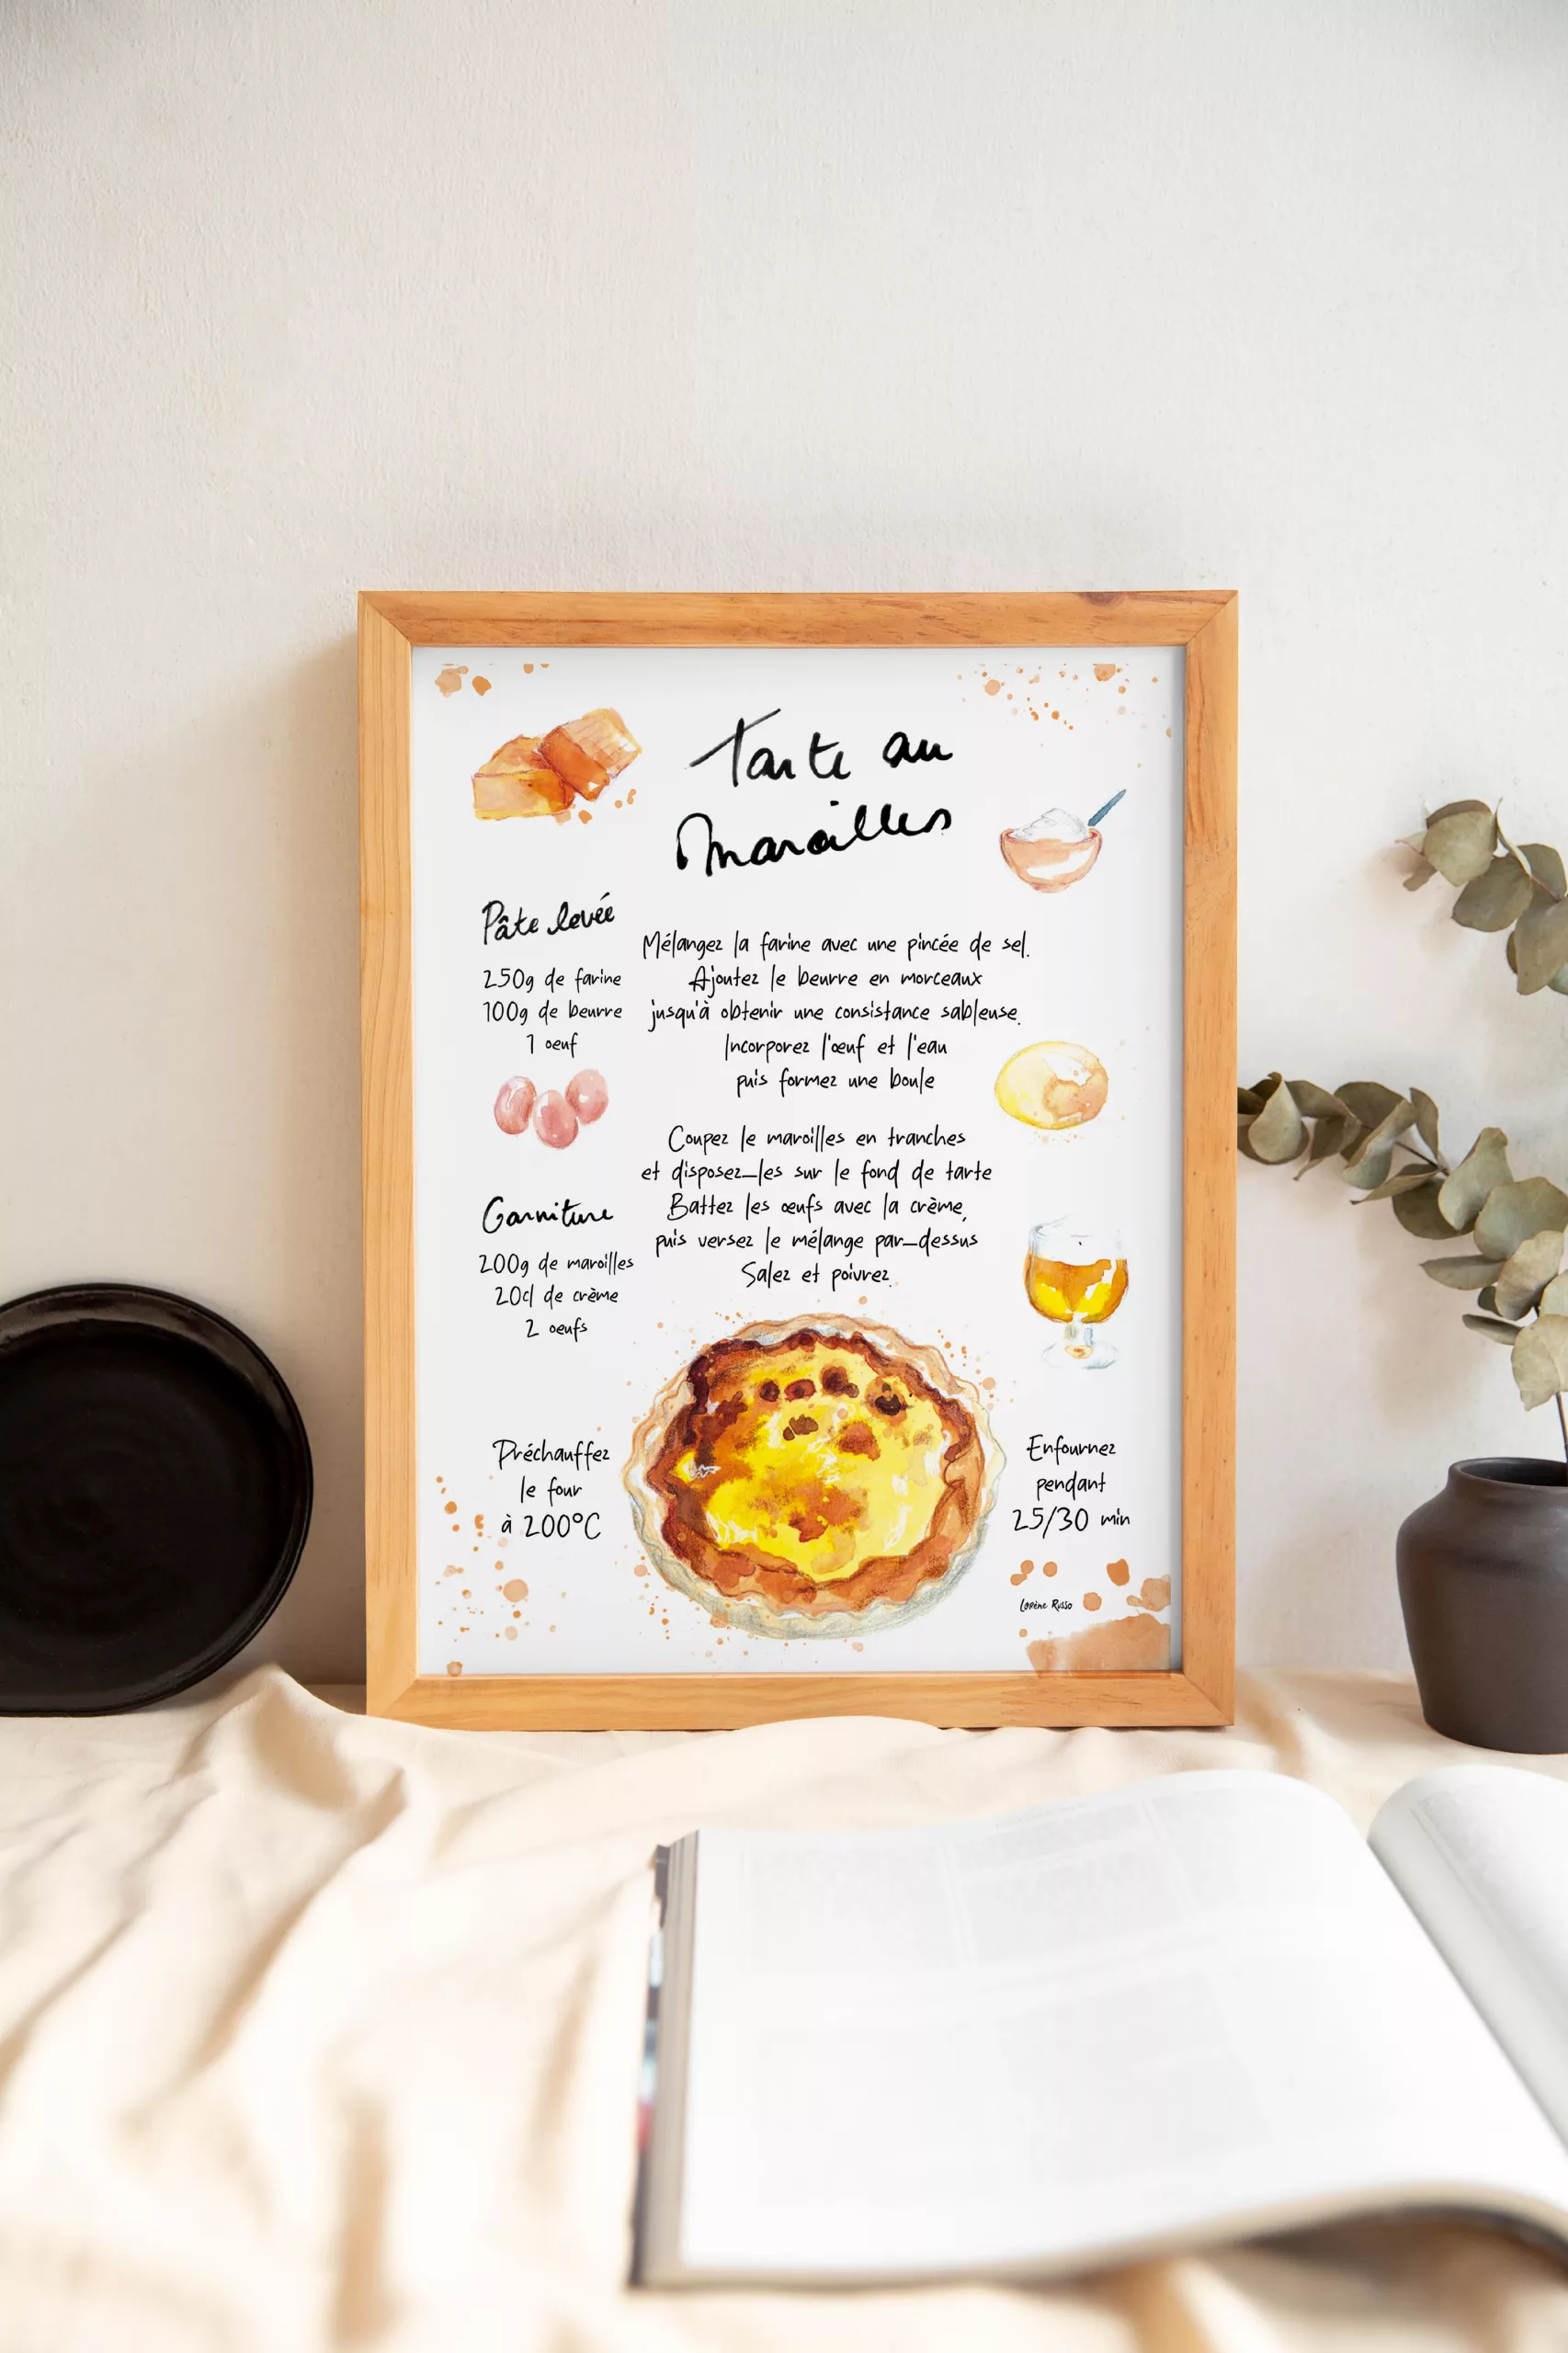 Tarte au
Maroilles
Pâte levée
250g de farine
100g de beurre
1 oeuf
Mélangez la farine avec une pincée de sel.
Ajoutez le beurre en morceaux
jusqu'à obtenir une consistance sableuse.
Incorporez l'œuf et l'eau
puis formez une boule
Garniture
200g de maroilles
20cl de crème
2 oeufs
Coupez le maroilles en tranches
et disposez-les sur le fond de tarte
Battez les œufs avec la crème,
puis versez le mélange par-dessus
Salez et poivrez.
Préchauffez
le four
à 200°C
Enfournez
pendant
25/30 min
Lorène Russo